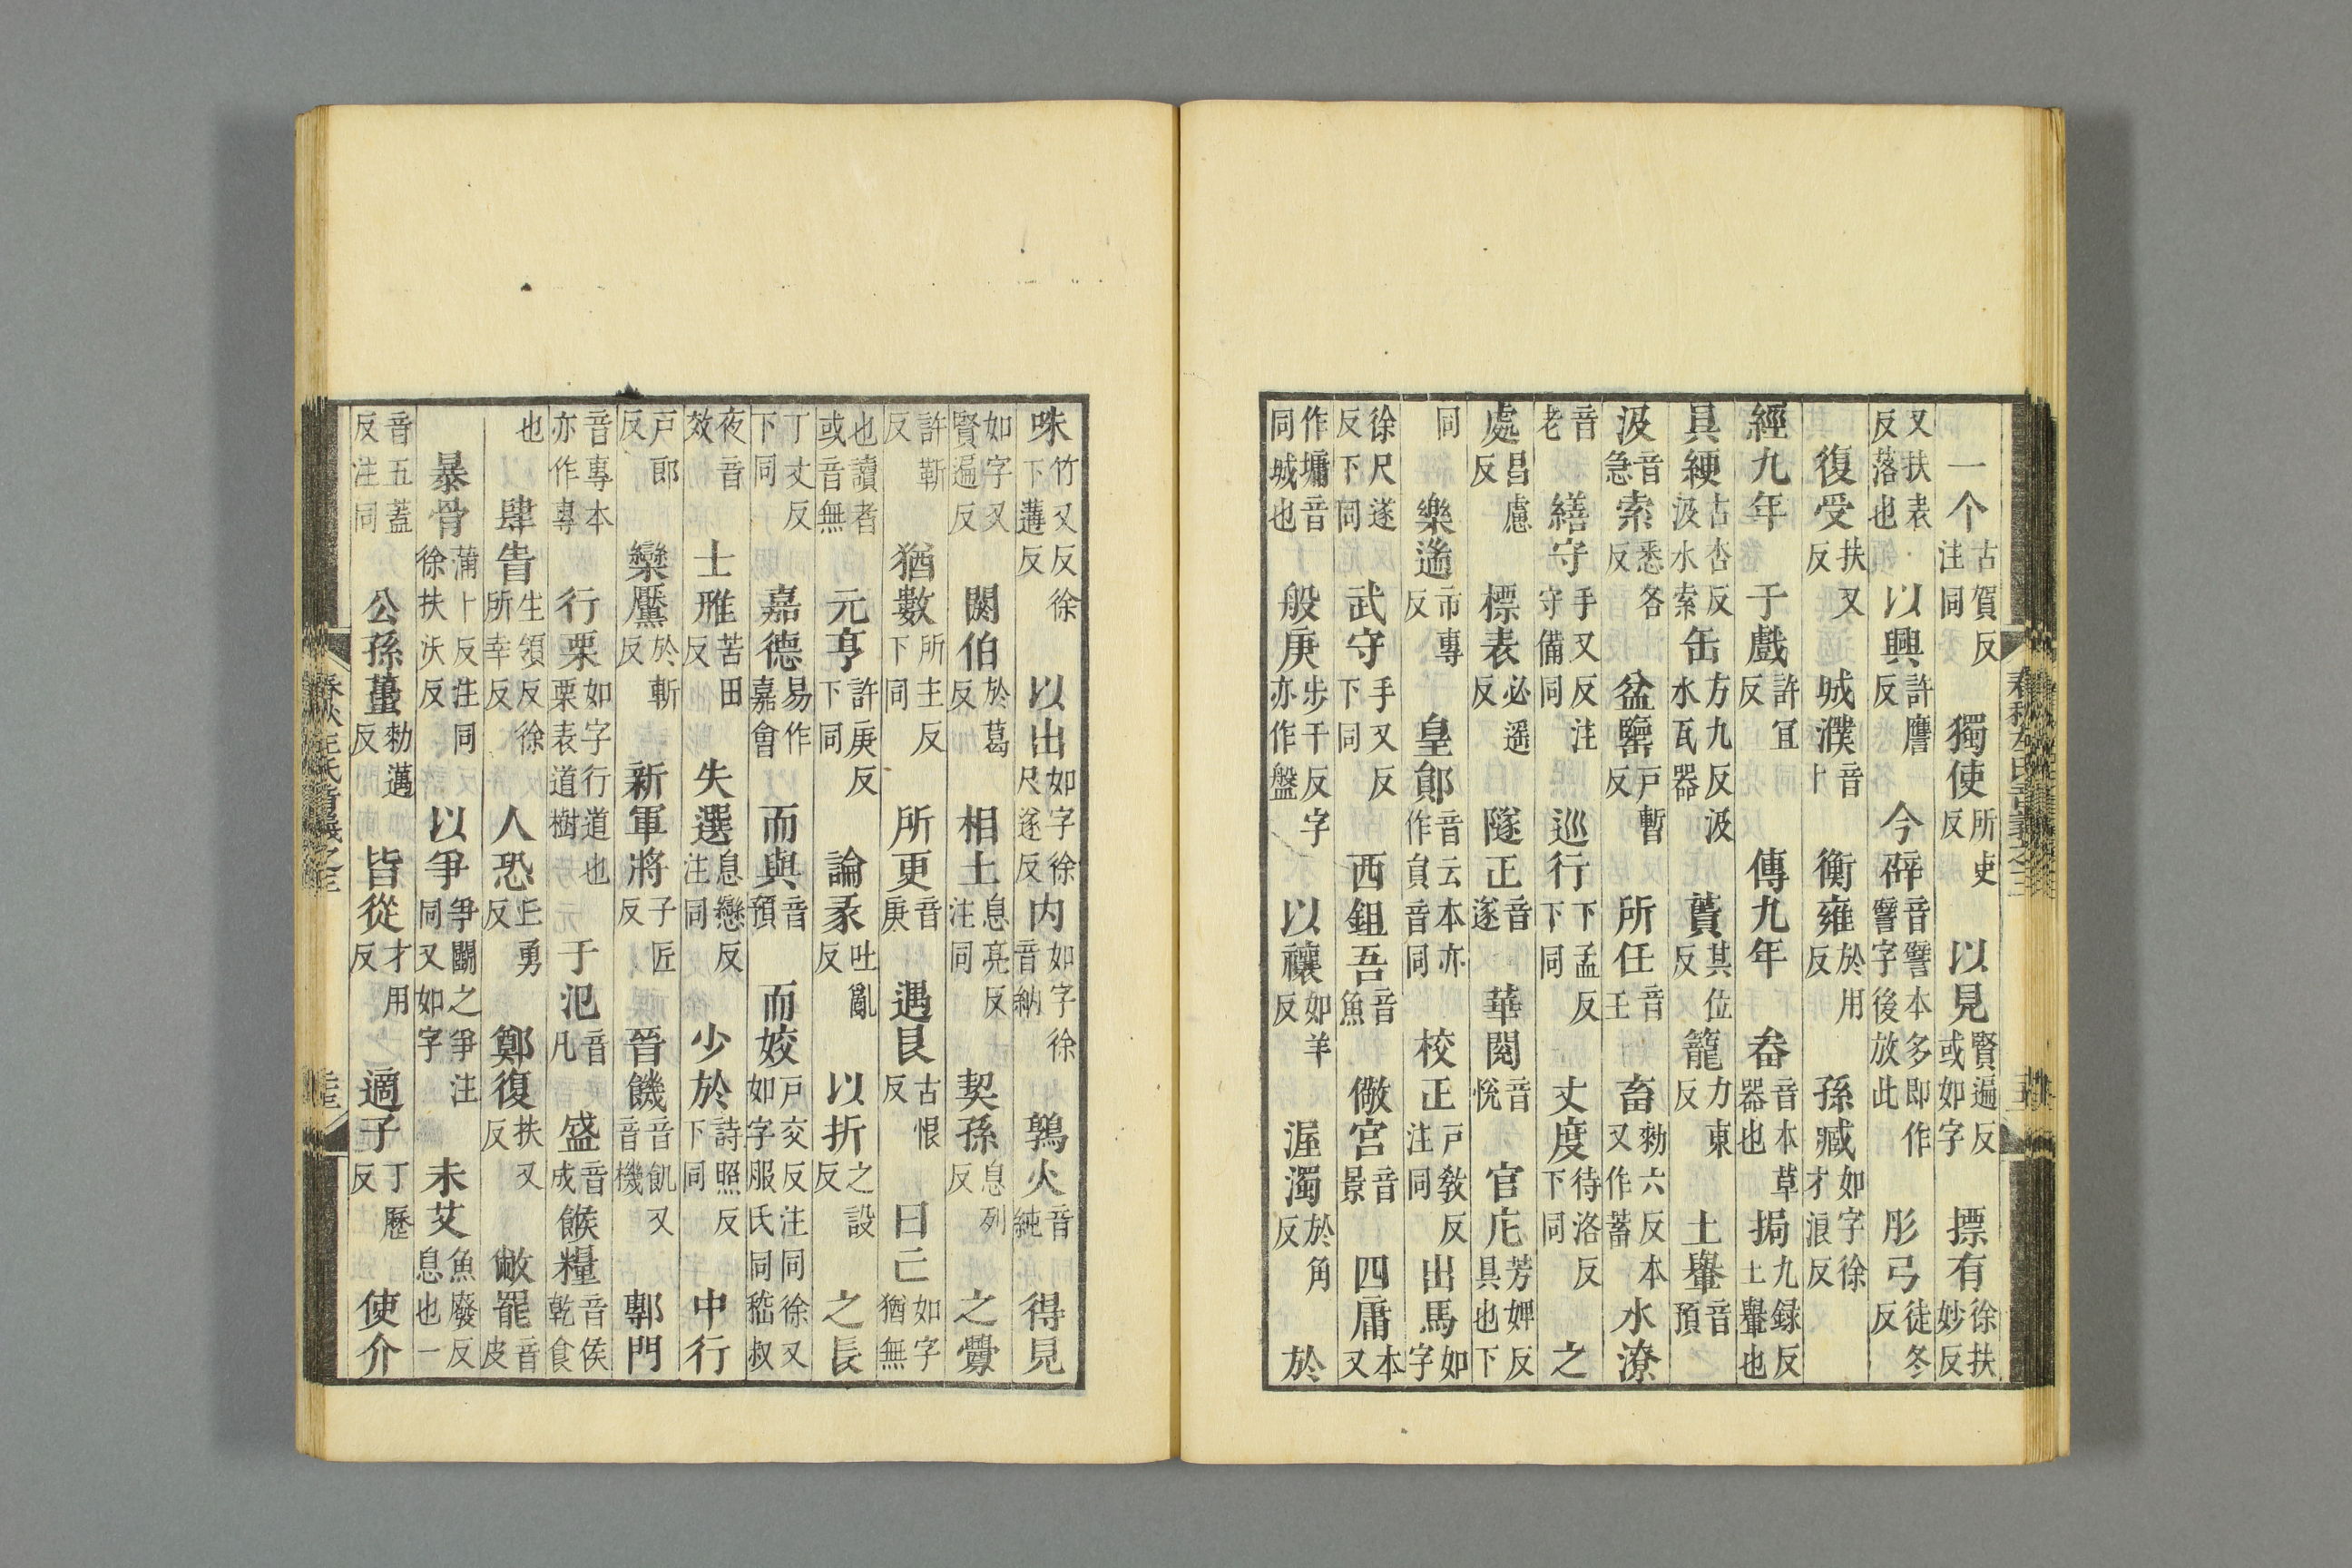 一个古賀反注同　獨使所吏反　以見賢遍反或如字　摽有徐扶妙反
又扶表反落也　以興許膺反　今辟音譬本多即作譬字後放此　彤弓徒冬反
復受扶又反　城濮音卜　衡雍於用反　孫臧如字徐才浪反
經九年　子戲許宜反　傳九年　畚音本草器也　挶九録反土轝也
具綆古杏反汲水索　缶方九反汲水瓦器　蕢其位反　籠力東反　土轝音預
汲音急　索悉各反　盆鑒戶暫反　所任音壬　畜勑六反本又作蓄　水潦
音老　繕守手又反注守備同　巡行下孟反下同　丈度待洛反下同　之
處昌慮反　標表必遥反　隧正音遂　華閱音悅　官庀芳婢反具也下
同　樂遄市專反　皇鄖音云本亦作員音同　校正戶教反注同　出馬如字
徐尺遂反下同　武守手又反下同　西鉏吾音魚　儆宮音景　四庸本又
作墉音同城也　般庚步干反字亦作盤　以禳如羊反　渥濁於角反　於
春秋左氏音義之三
咮竹又反徐下遘反　以出如字徐尺遂反　内如字徐音納　鶉火音純　得見
如字又賢遍反　閼伯於葛反　相土息亮反注同　契孫息列反　之釁
許靳反　猶數所主反下同　所更音庚　遇艮古恨反　曰亡如字猶無
也讀者或音無　元亨許庚反下同　論彖吐亂反　以折之設反　之長
丁丈反下同　嘉德易作嘉會　而與音預　而姣戶交反注同徐又如字服氏同嵇叔
夜音效　士雃苦田反　失選息戀反注同　少於詩照反下同　中行
戶郎反　欒黶於斬反　新軍將子匠反　晉饑音飢又音機　鄟門
音專本亦作專　行栗如字行道也栗表道樹　于氾音凡　盛音成　餱糧音侯乾食
也　肆眚生領反徐所幸反　人恐丘勇反　鄭復扶又反　敝罷音皮
暴骨蒲卜反注同徐扶沃反　以爭爭鬬之爭注同又如字　未艾魚廢反息也一
音五蓋反注同　公孫蠆勑邁反　皆從才用反　適子丁歷反　使介
春秋左氏音義之三